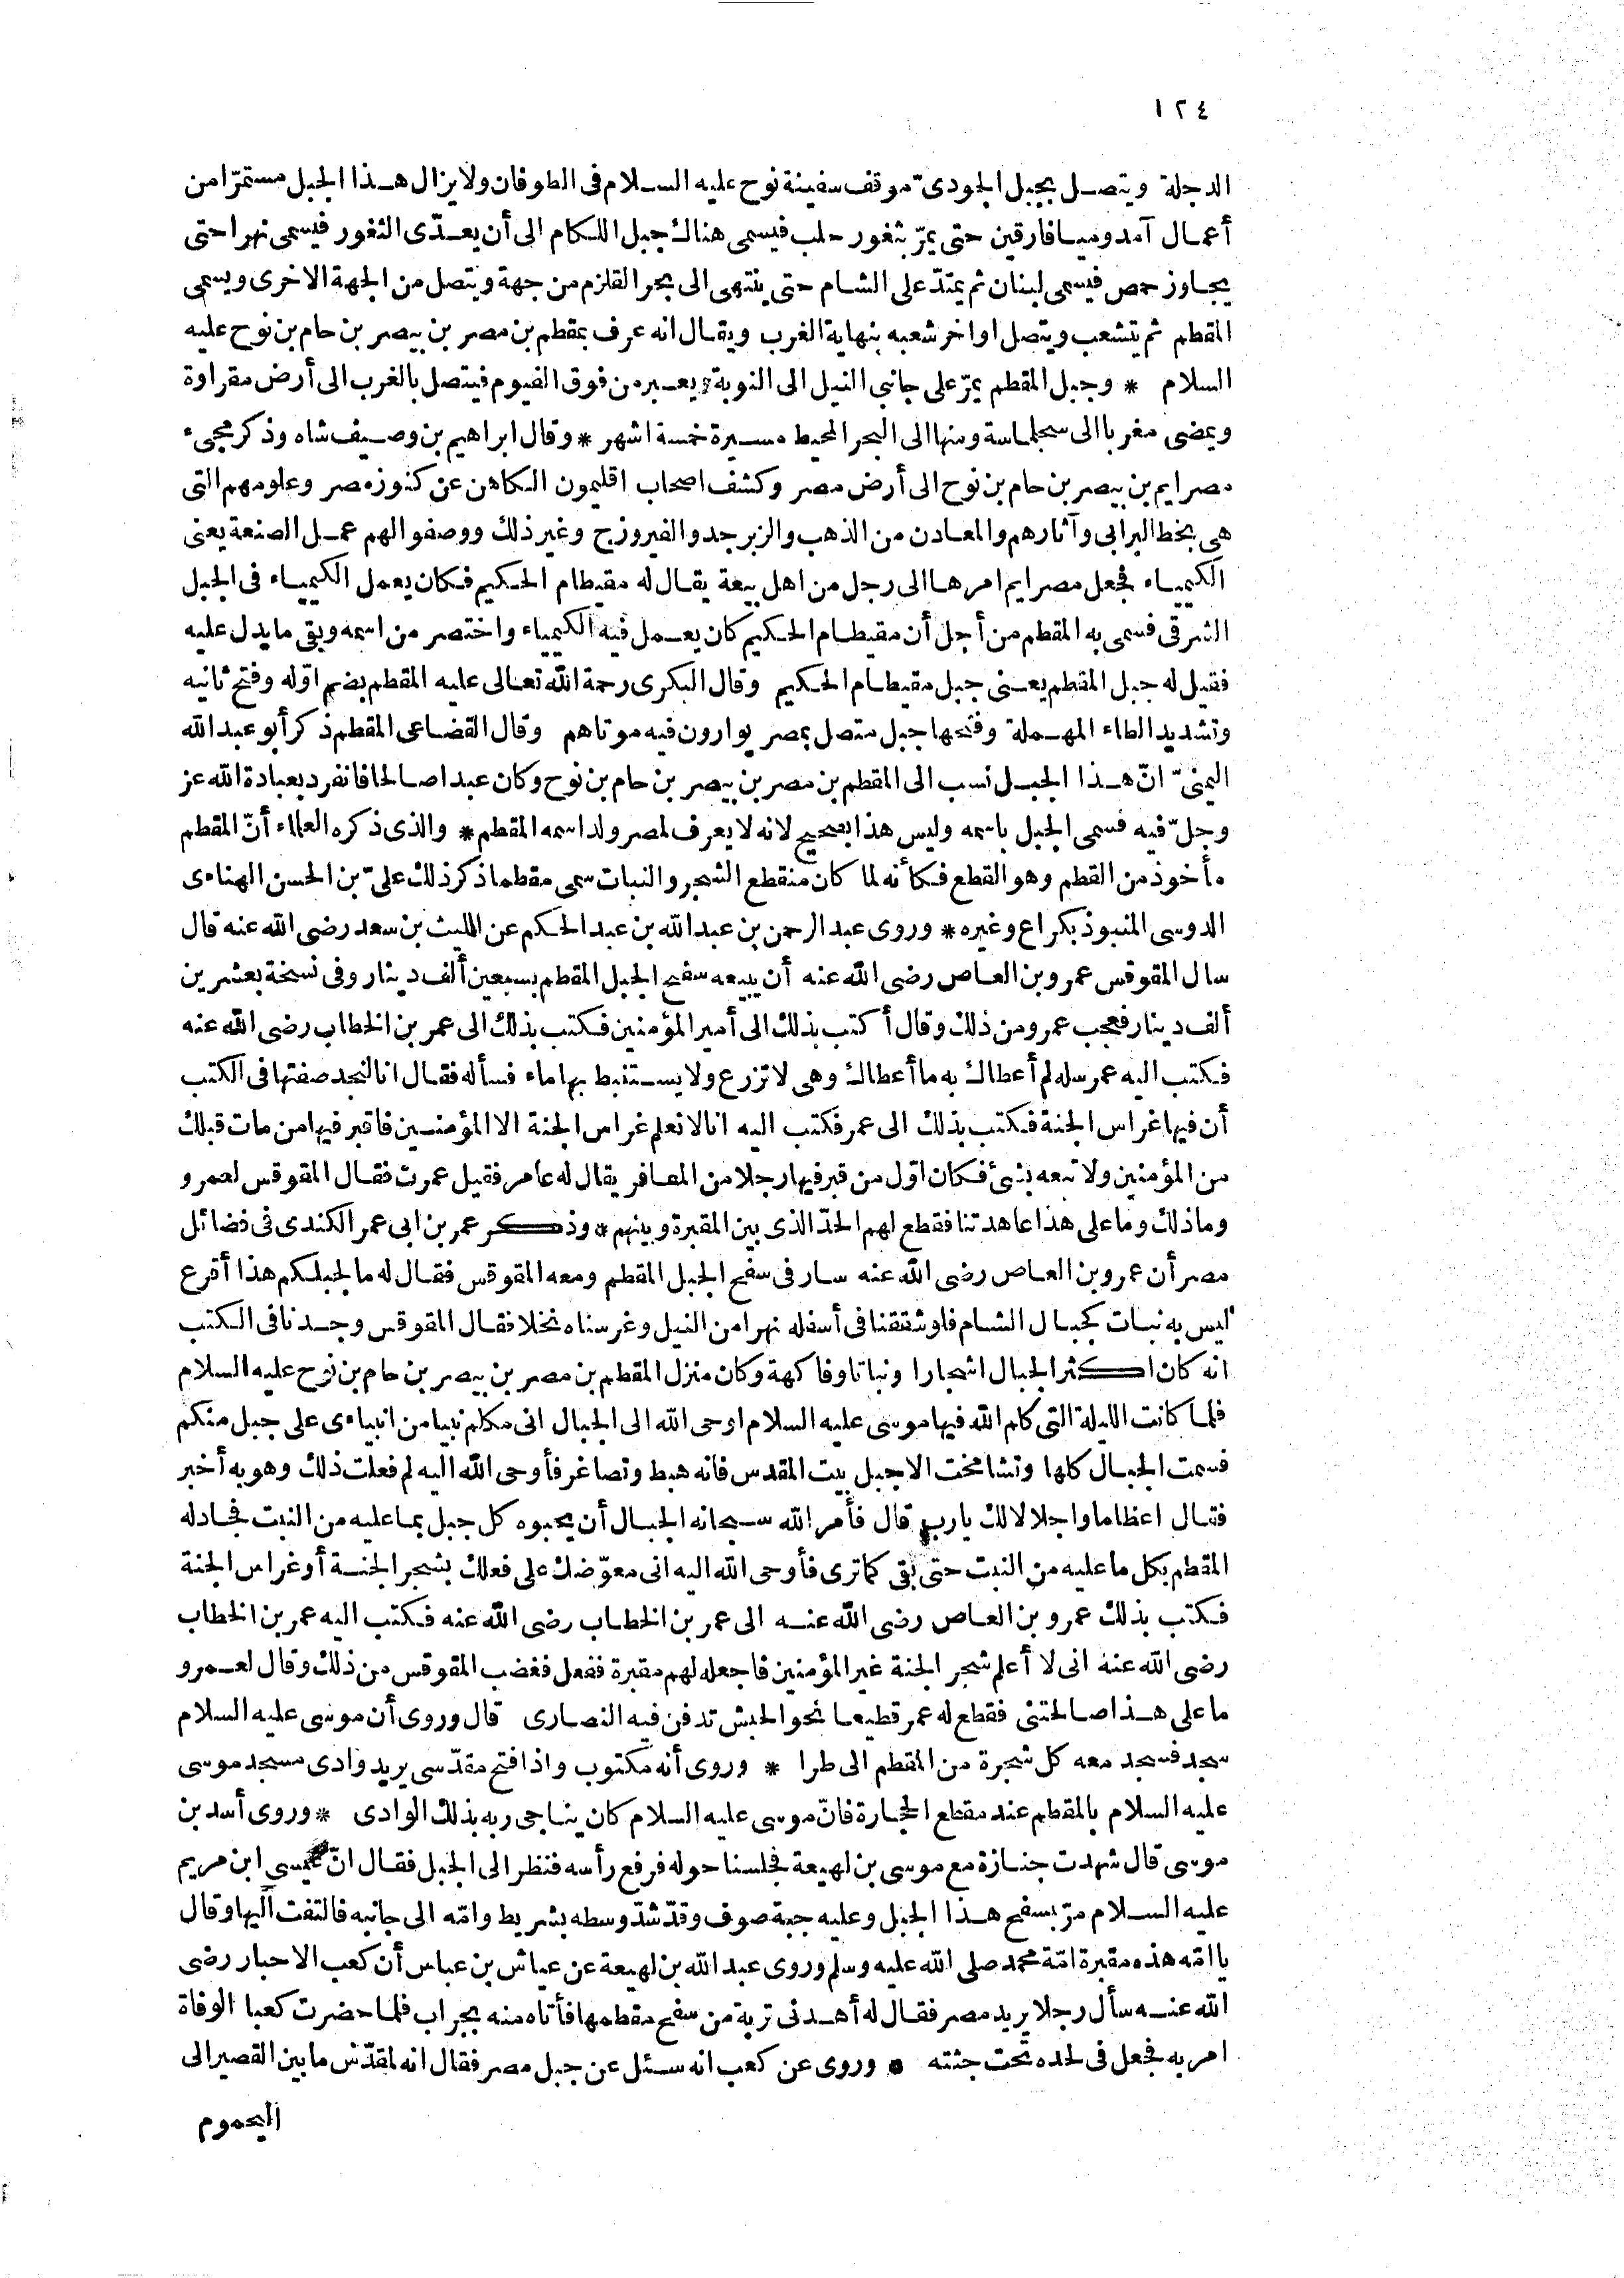 ١٢٤
الدجلة ويتصل بجبل الجودىّ موقف سفينة نوح عليه السلام فى الطوفان ولا يزال هذا الجبل مستمرّا من
أعمال آمد وميافارقين حتى يمرّ بثغور حلب فيسمى هناك جبل اللكام الى أن يعدّى الثغور فيسمى نهرا حتى
يجاوز حمص فيسمى لبنان ثم يمتدّ على الشام حتى ينتهى الى بحر القلزم من جهة ويتصل من الجهة الاخرى ويسمى
المقطم ثم يتشعب ويتصل اواخر شعبه بنهاية الغرب ويقال انه عرف بمقطم بن مصر بن بيصر بن حام بن نوح عليه
السلام * وجبل المقطم يمرّ على جانبى النيل الى النوبة ويعبر من فوق الفيوم فيتصل بالغرب الى أرض مقراوة
ويمضى مغربا الى سجلماسة ومنها الى البحر المحيط مسيرة خمسة اشهر * وقال ابراهيم بن وصيف شاه وذكر مجىء
مصرايم بن بيصر بن حام بن نوح الى أرض مصر وكشف اصحاب اقليمون الكاهن عن كنوز مصر وعلومهم التى
هى بخط البرابى وآثارهم والمعادن من الذهب والزبرجد والفيروزج وغير ذلك ووصفوا لهم عمل الصنعة يعنى
الكيمياء فجعل مصرايم امرها الى رجل من اهل بيعة يقال له مقيطام الحكيم فكان يعمل الكيمياء فى الجبل
الشرقى فسمى به المقطم من أجل أن مقيطام الحكيم كان يعمل فيه الكيمياء واختصر من اسمه وبقى ما يدل عليه
فقيل له جبل المقطم يعنى جبل مقيطام الحكيم وقال البكرى رحمة الله تعالى عليه المقطم بضم اوّله وفتح ثانيه
وتشديد الطاء المهملة وفتحها جبل متصل بمصر يوارون فيه موتاهم وقال القضاعى المقطم ذكر أبو عبد الله
اليمنىّ انّ هذا الجبل نسب الى المقطم بن مصر بن بيصر بن حام بن نوح وكان عبدا صالحا فانفرد بعبادة الله عز
وجلّ فيه فسمى الجبل باسمه وليس هذا بصحيح لانه لا يعرف لمصر ولد اسمه المقطم * والذى ذكره العلماء أنّ المقطم
مأخوذ من القطم وهو القطع فكأنه لما كان منقطع الشجر والنبات سمى مقطما ذكر ذلك علىّ بن الحسن الهناءى
الدوسى المنبوذ بكراع وغيره * وروى عبد الرحمن بن عبد الله بن عبد الحكم عن الليث بن سعد رضى الله عنه قال
سال المقوقس عمرو بن العاص رضى الله عنه أن يبيعه سفح الجبل المقطم بسبعين ألف دينار وفى نسخة بعشرين
ألف دينار فعجب عمرو من ذلك وقال أكتب بذلك الى أمير المؤمنين فكتب بذلك الى عمر بن الخطاب رضى الله عنه
فكتب اليه عمر سله لم أعطاك به ما أعطاك وهى لا تزرع ولا يستنبط بها ماء فسأله فقال انا لنجد صفتها فى الكتب
أن فيها غراس الجنة فكتب بذلك الى عمر فكتب اليه انا لا نعلم غراس الجنة الا المؤمنين فاقبر فيها من مات قبلك
من المؤمنين ولا تبعه بشئ فكان اوّل من قبر فيها رجلا من المعافر يقال له عامر فقيل عمرت فقال المقوقس لعمرو
وما ذلك وما على هذا عاهدتنا فقطع لهم الحدّ الذى بين المقبرة وبينهم * وذكر عمر بن ابى عمر الكندى فى فضائل
مصر أن عمرو بن العاص رضى الله عنه سار فى سفح الجبل المقطم ومعه المقوقس فقال له ما لجبلكم هذا أقرع
ليس به نبات كجبال الشام فلو شققنا فى أسفله نهرا من النيل وغرسناه نخلا فقال المقوقس وجدنا فى الكتب
انه كان اكثر الجبال اشجارا ونباتا وفاكهة وكان منزل المقطم بن مصر بن بيصر بن حام بن نوح عليه السلام
فلما كانت الليلة التى كلم الله فيها موسى عليه السلام اوحى الله الى الجبال انى مكلم نبيا من انبياءى على جبل منكم
فسمت الجبال كلها وتشامخت الا جبل بيت المقدس فانه هبط وتصاغر فأوحى الله اليه لم فعلت ذلك وهو به أخبر
فقال اعظاما واجلالا لك يا رب قال فأمر الله سبحانه الجبال أن يحبوه كل جبل بما عليه من النبت فجادله
المقطم بكل ما عليه من النبت حتى بقى كما ترى فأوحى الله اليه انى معوّضك على فعلك بشجر الجنة أو غراس الجنة
فكتب بذلك عمرو بن العاص رضى الله عنه الى عمر بن الخطاب رضى الله عنه فكتب اليه عمر بن الخطاب
رضى الله عنه انى لا أعلم شجر الجنة غير المؤمنين فاجعله لهم مقبرة ففعل فغضب المقوقس من ذلك وقال لعمرو
ما على هذا صالحتنى فقطع له عمر قطيعا نحو الحبش تدفن فيه النصارى قال وروى أن موسى عليه السلام
سجد فسجد معه كل شجرة من المقطم الى طرا * وروى أنه مكتوب واذا فتح مقدّسى يريد وادى مسجد موسى
عليه السلام بالمقطم عند مقطع الحجارة فانّ موسى عليه السلام كان يناجى ربه بذلك الوادى * وروى أسد بن
موسى قال شهدت جنازة مع موسى بن لهيعة فجلسنا حوله فرفع رأسه فنظر الى الجبل فقال انّ عيسى ابن مريم
عليه السلام مرّ بسفح هذا الجبل وعليه جبة صوف وقد شدّ وسطه بشريط وامّه الى جانبه فالتفت اليها وقال
يا امّه هذه مقبرة امّة محمد صلى الله عليه وسلم وروى عبد الله بن لهيعة عن عياش بن عباس أن كعب الاحبار رضى
الله عنه سأل رجلا يريد مصر فقال له أهدنى تربة من سفح مقطمها فأتاه منه بجراب فلما حضرت كعبا الوفاة
امر به فجعل فى لحده تحت جثته * وروى عن كعب انه سئل عن جبل مصر فقال انه لمقدّس ما بين القصير الى
اليحموم